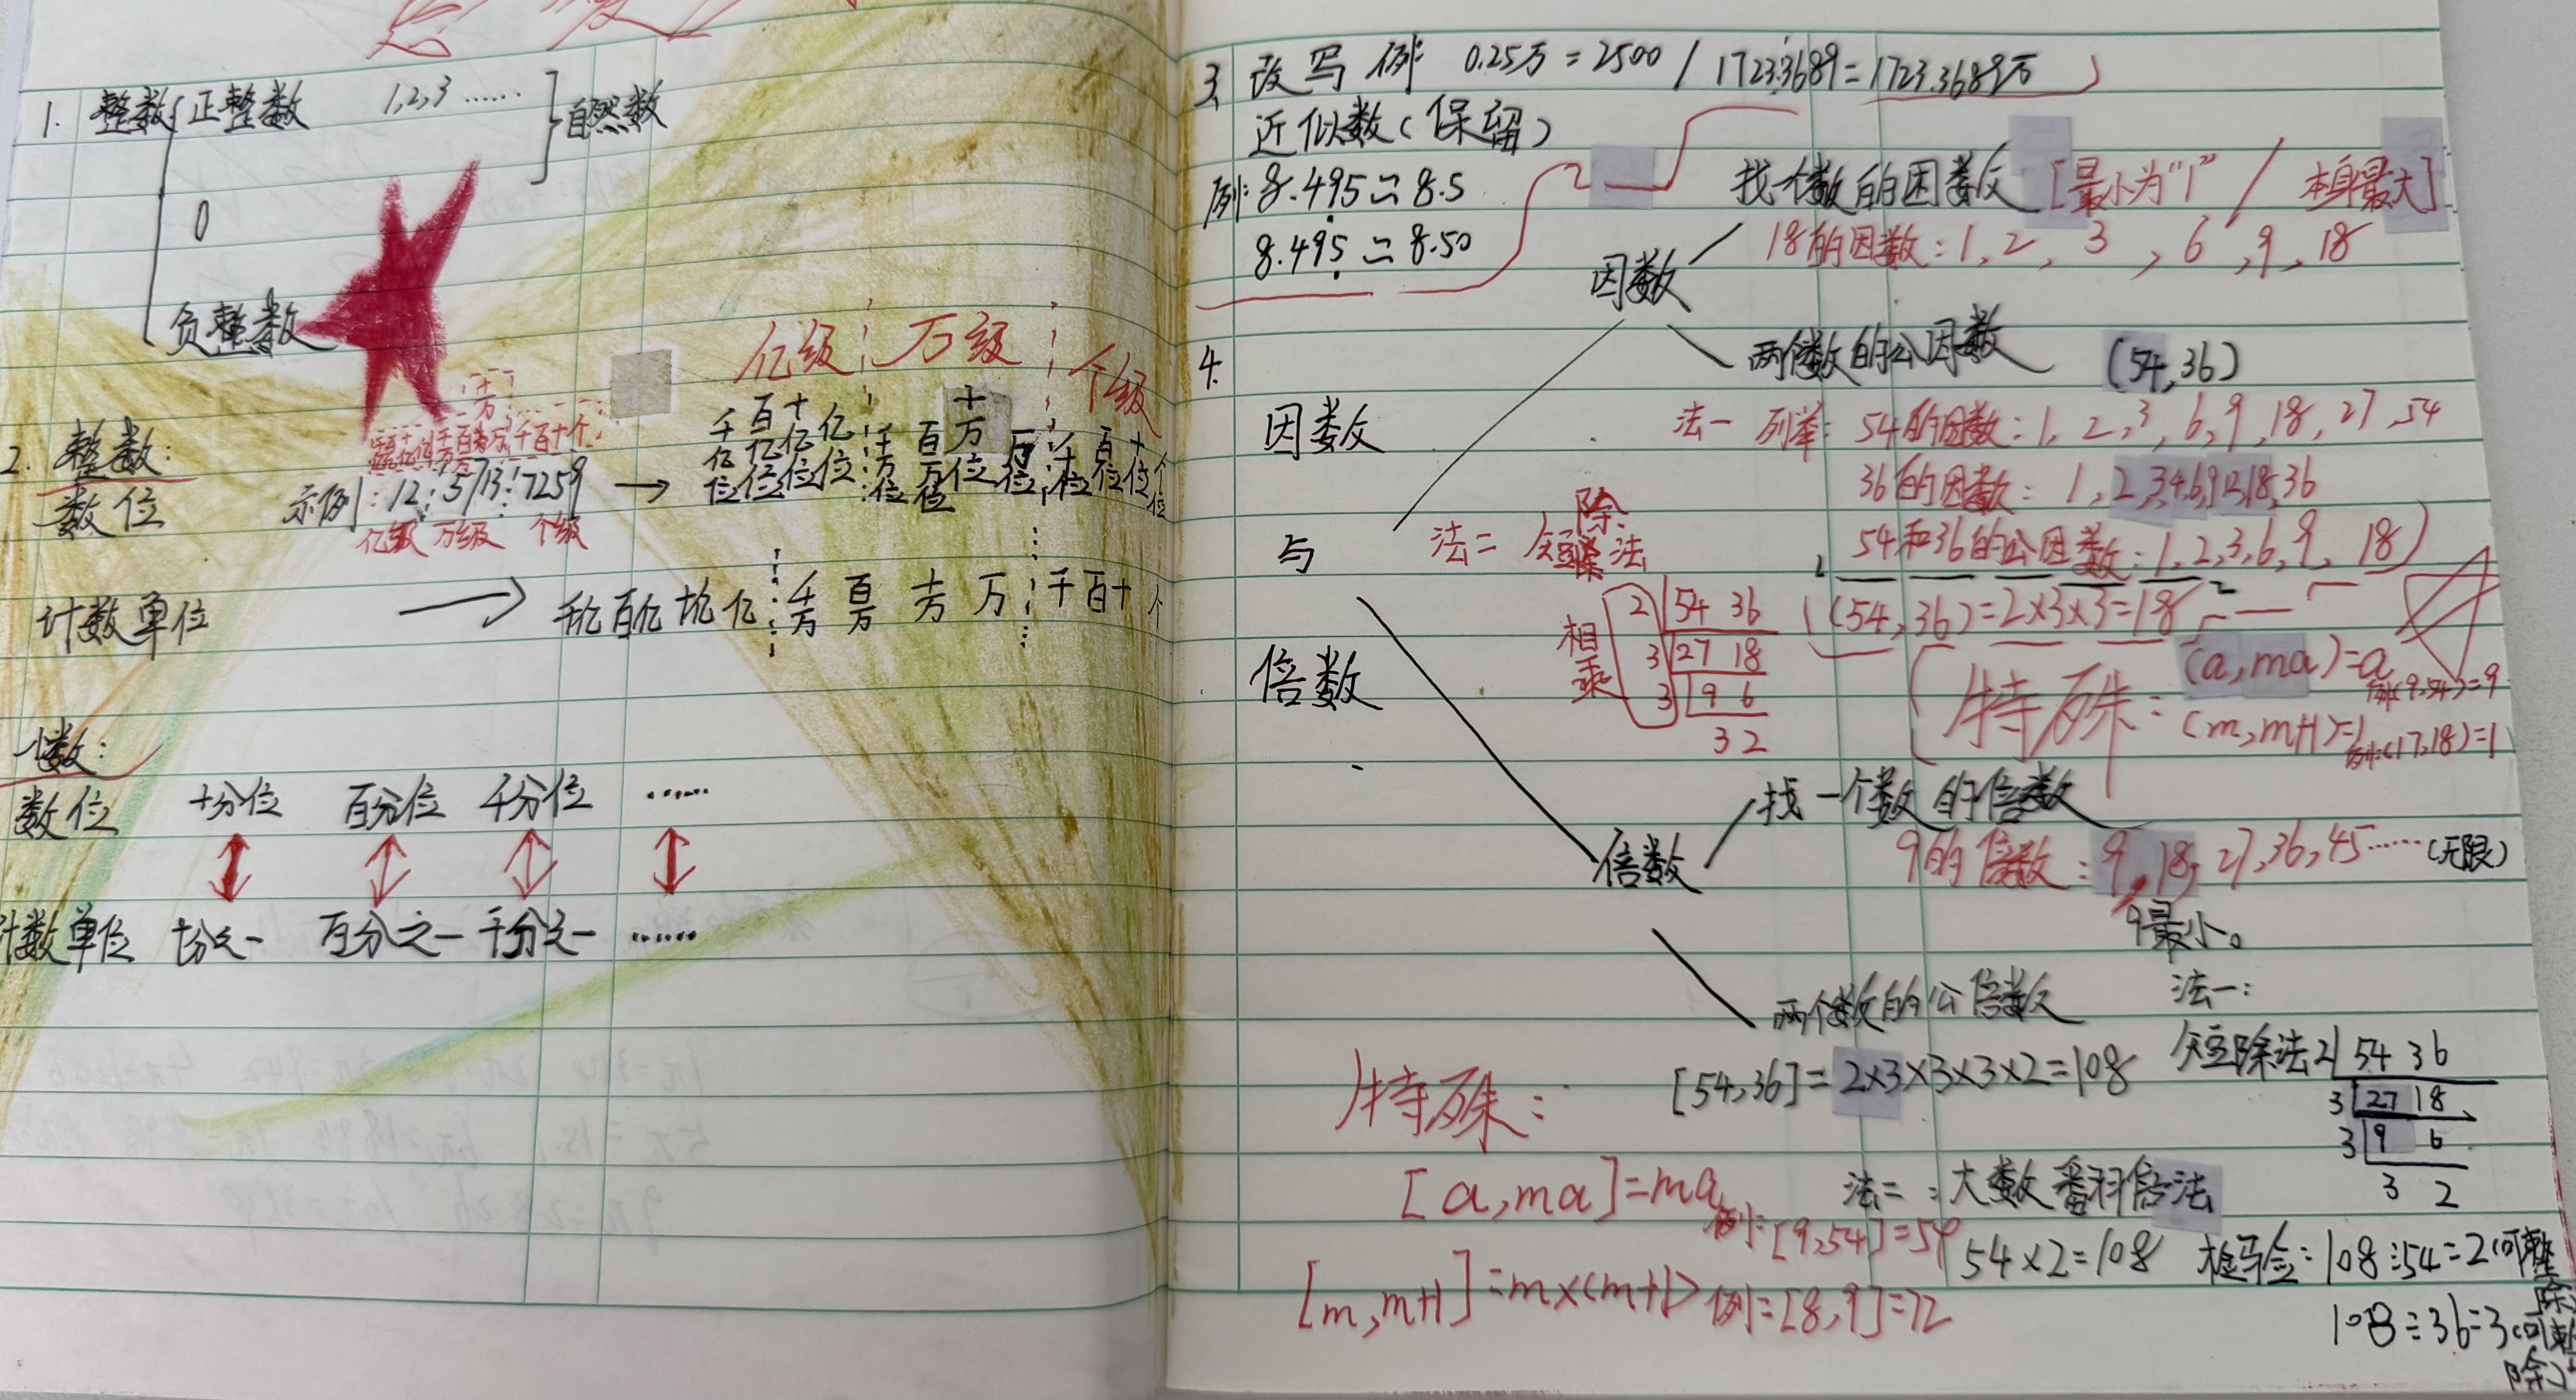 总复习
1. 整数 正整数 1,2,3…… 自然数
0
负整数
亿级 万级 个级
2. 整数:
千亿位 百亿位 十亿位 亿位 千万位 百万位 十万位 万位 千位 百位 十位 个位
数位 示例:12:5713:7259
亿级 万级 个级
计数单位 千亿 百亿 十亿 亿 千万 百万 十万 万 千 百 十 个
小数:
数位 十分位 百分位 千分位 ……
计数单位 十分之一 百分之一 千分之一 ……
3、改写 例: 0.25万=2500 / 17233689=1723.3689万
近似数(保留)
例:8.495≈8.5
8.495≈8.50
4.
因数
与
倍数
因数
找一个数的因数 [最小为“1” / 本身最大]
18的因数:1,2,3,6,9,18
两个数的公因数 (54,36)
法一 列举:54的因数:1,2,3,6,9,18,27,54
36的因数:1,2,3,4,6,9,12,18,36
54和36的公因数:1,2,3,6,9,18
法二 短除法
相乘
2 54 36
3 27 18
3 9 6
3 2
(54,36)=2×3×3=18
特殊:(a,ma)=a
例:(9,54)=9
(m,m+1)=1
例:(17,18)=1
倍数
找一个数的倍数
9的倍数:9,18,27,36,45……(无限)
9最小。
两个数的公倍数
法一:
短除法 2 54 36
3 27 18
3 9 6
3 2
[54,36]=2×3×3×3×2=108
法二:大数翻倍法
54×2=108 检验:108÷54=2(可整除)
108÷36=3(可整除)
特殊:
[a,ma]=ma
例:[9,54]=54
[m,m+1]=m×(m+1) 例:[8,9]=72